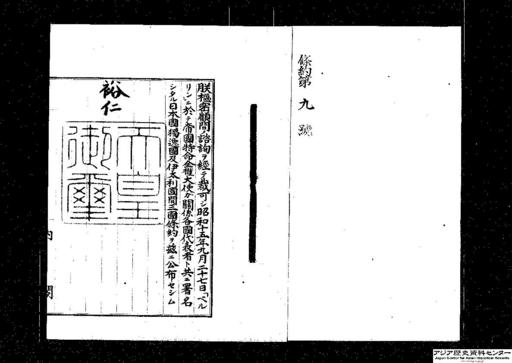 條約第九號
朕樞密顧問ノ諮詢ヲ經テ裁可シ昭和十五年九月二十七日「ベル
リン」ニ於テ帝國特命全權大使カ關係各國代表者ト共ニ署名
シタル日本國獨逸國及伊太利國間三國條約ヲ茲ニ公布セシム
裕仁
天皇
御璽
内閣
アジア歴史資料センター
Japan Center for Asian Historical Records